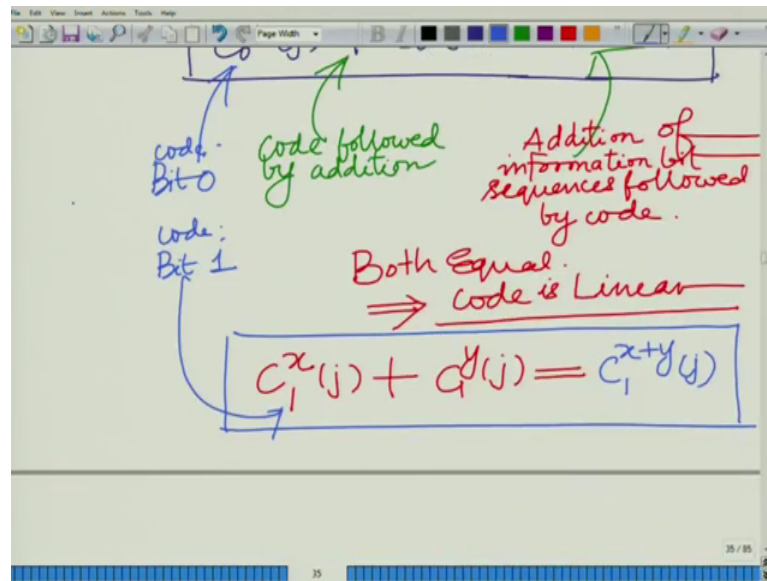 File Edit View Insert Actions Tools Help
Page Width
B I
code:
Bit 0
code followed
by addition
Addition of
information bit
sequences followed
by code.
code:
Bit 1
Both Equal.
⇒ code is Linear
C₁ˣ(j) + C₁ʸ(j) = C₁ˣ⁺ʸ(j)
35 / 85
35